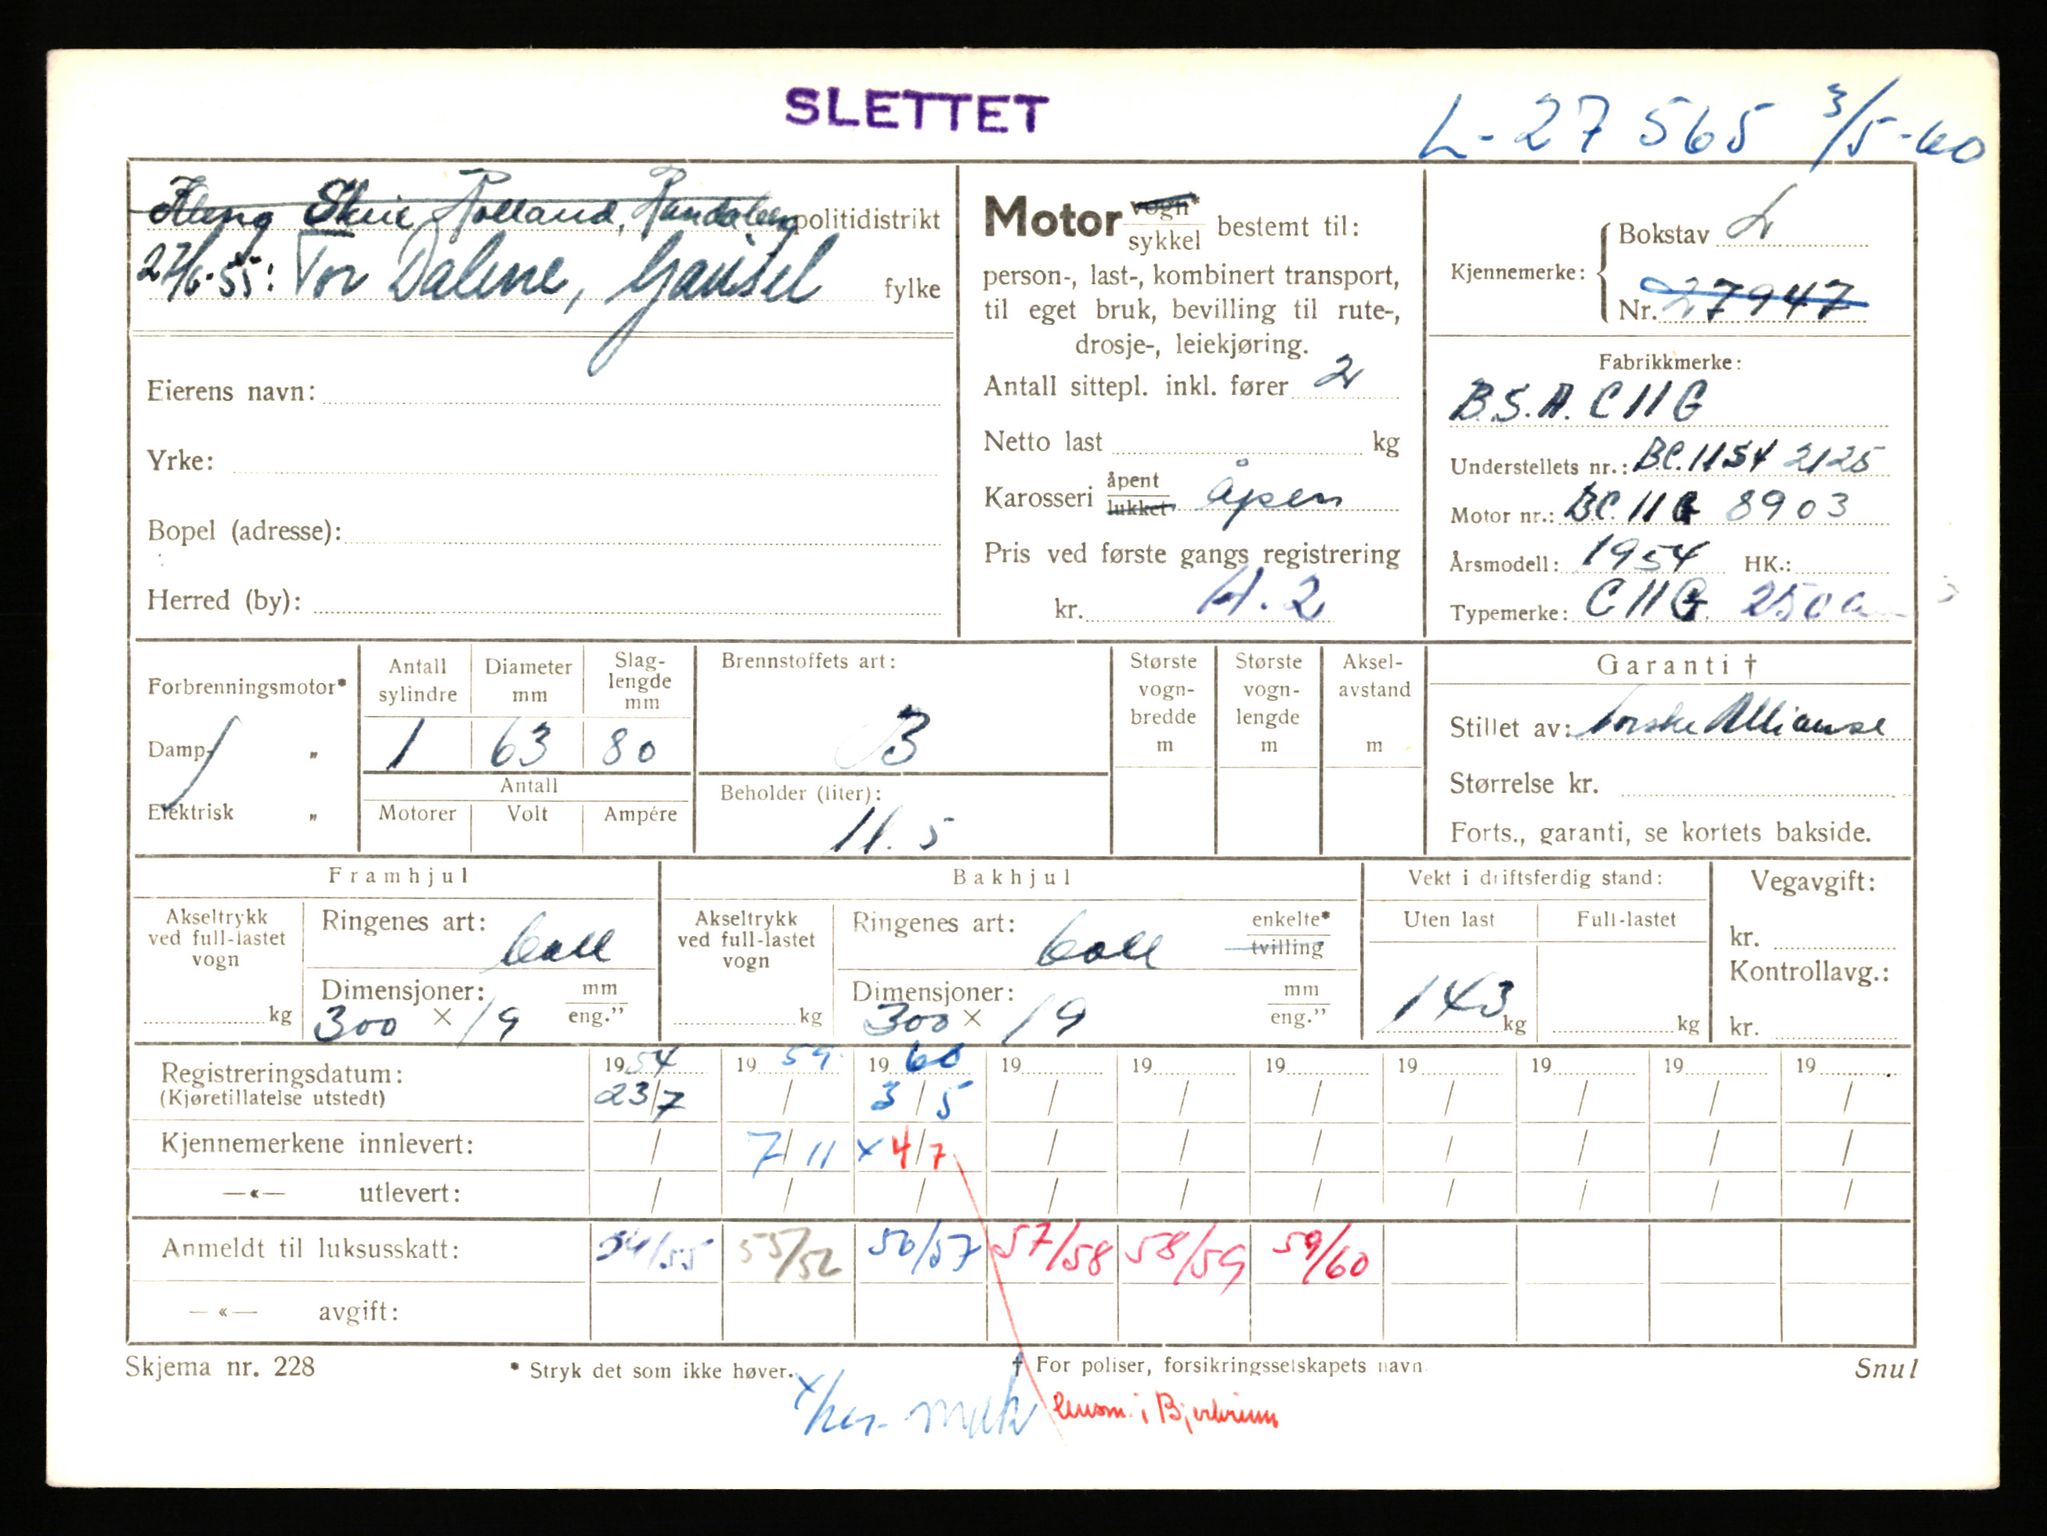 SLETTET
L-27565 3/5-60
Rolland, Randaberg politidistrikt
27/6-55: Tor Dalene, Gausel fylke
Eierens navn:
Yrke:
Bopel (adresse):
Herred (by):
Motor vogn* / sykkel bestemt til:
person-, last-, kombinert transport,
til eget bruk, bevilling til rute-,
drosje-, leiekjøring.
Antall sittepl. inkl. fører 2
Netto last kg
Karosseri åpent / lukket Åpen
Pris ved første gangs registrering
kr. H.2
Kjennemerke: Bokstav L
Nr. 27947
Fabrikkmerke:
B.S.A. C11G
Understellets nr.: B.C.11S4 2125
Motor nr.: B.C.11G 8903
Årsmodell: 1954 HK.:
Typemerke: C11G 250
Forbrenningsmotor*
Damp- "
Elektrisk "
Antall sylindre 1
Diameter mm 63
Slag-lengde mm 80
Antall
Motorer Volt Ampére
Brennstoffets art:
B
Beholder (liter):
11.5
Største vogn-bredde m
Største vogn-lengde m
Aksel-avstand m
Garanti †
Stillet av: Norske Allianse
Størrelse kr.
Forts., garanti, se kortets bakside.
Framhjul
Akseltrykk ved full-lastet vogn
kg
Ringenes art: Coll
Dimensjoner: mm / eng."
300 × 19
Bakhjul
Akseltrykk ved full-lastet vogn
kg
Ringenes art: Coll enkelte* / tvilling
Dimensjoner: mm / eng."
300 × 19
Vekt i driftsferdig stand:
Uten last Full-lastet
143 kg kg
Vegavgift:
kr.
Kontrollavg.:
kr.
Registreringsdatum: 1954 1959 1960 19 19 19 19 19 19 19
(Kjøretillatelse utstedt) 23/7 / 3/5 / / / / / / /
Kjennemerkene innlevert: / 7/11 x 4/7 / / / / / / /
—«— utlevert: / / / / / / / / / /
Anmeldt til luksusskatt: 54/55 55/56 56/57 57/58 58/59 59/60
—«— avgift:
Skjema nr. 228 * Stryk det som ikke høver. † For poliser, forsikringsselskapets navn Snul